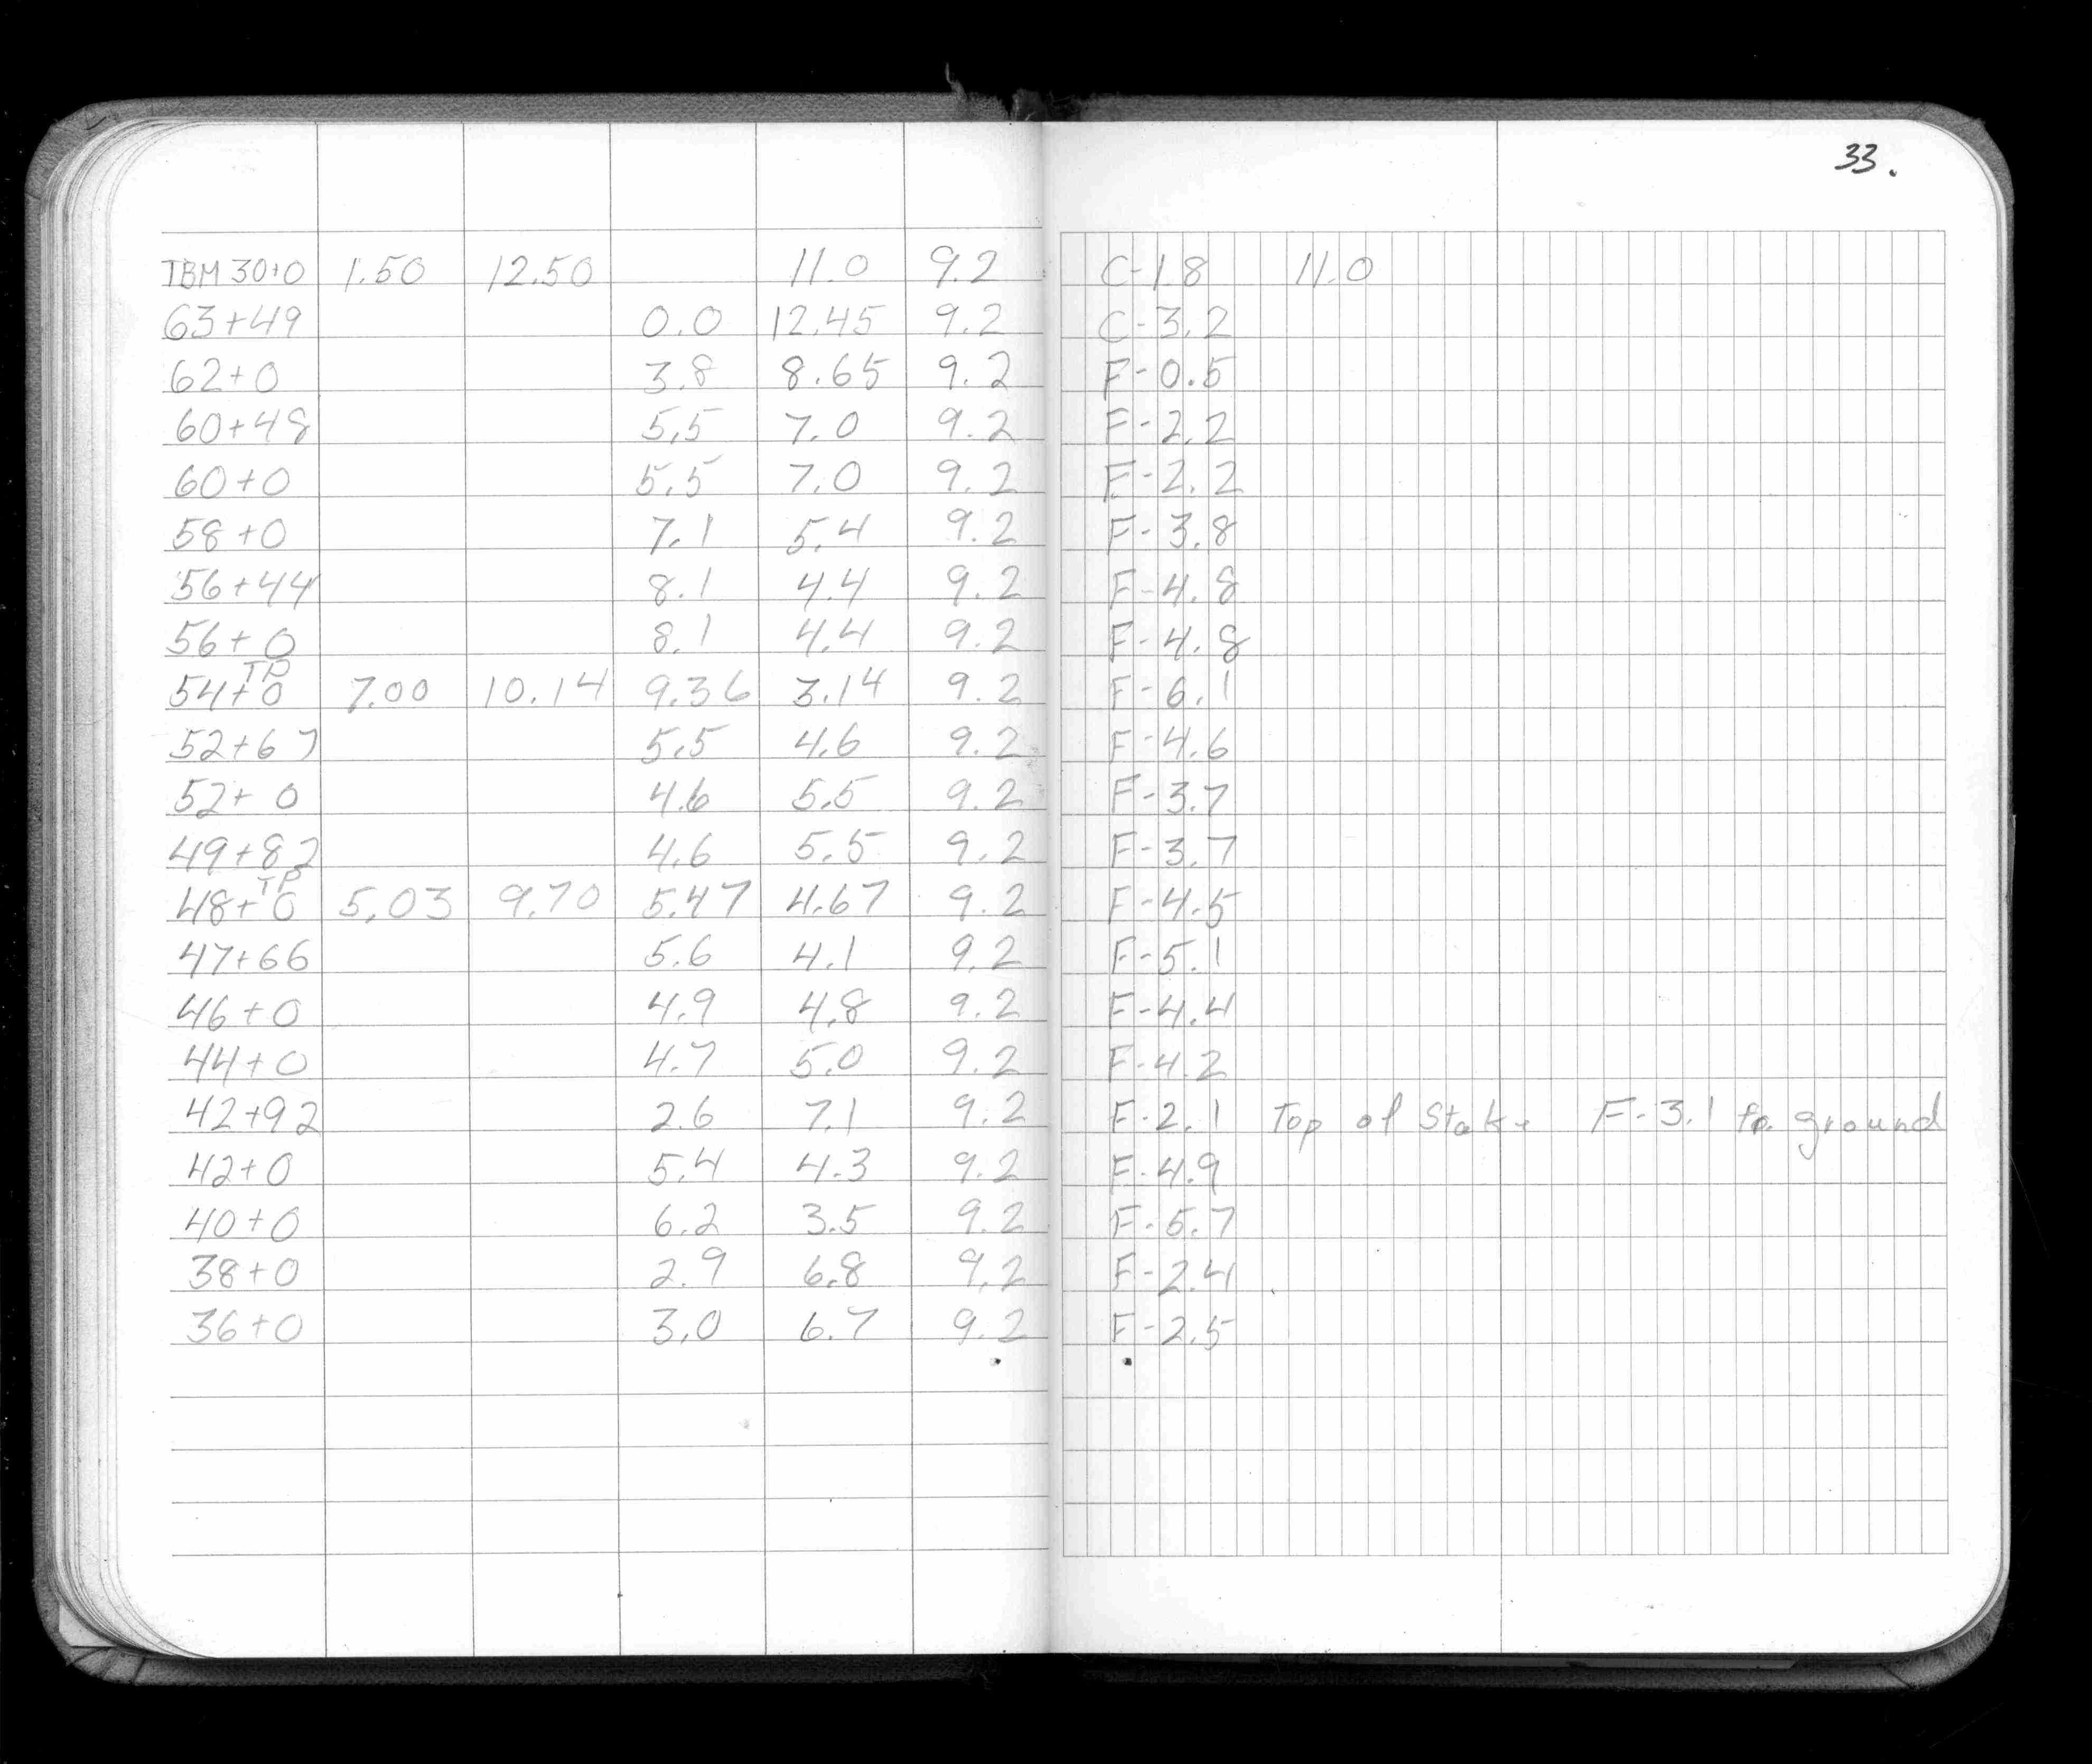 33.
TBM 30+0 1.50 12.50 11.0 9.2 C-1.8 11.0
63+49 0.0 12.45 9.2 C-3.2
62+0 3.8 8.65 9.2 F-0.5
60+48 5.5 7.0 9.2 F-2.2
60+0 5.5 7.0 9.2 F-2.2
58+0 7.1 5.4 9.2 F-3.8
56+44 8.1 4.4 9.2 F-4.8
56+0 8.1 4.4 9.2 F-4.8
TP
54+0 7.00 10.14 9.36 3.14 9.2 F-6.1
52+67 5.5 4.6 9.2 F-4.6
52+0 4.6 5.5 9.2 F-3.7
49+82 4.6 5.5 9.2 F-3.7
TP
48+0 5.03 9.70 5.47 4.67 9.2 F-4.5
47+66 5.6 4.1 9.2 F-5.1
46+0 4.9 4.8 9.2 F-4.4
44+0 4.7 5.0 9.2 F-4.2
42+92 2.6 7.1 9.2 F-2.1 Top of Stake F-3.1 to ground
42+0 5.4 4.3 9.2 F-4.9
40+0 6.2 3.5 9.2 F-5.7
38+0 2.9 6.8 9.2 F-2.4
36+0 3.0 6.7 9.2 F-2.5